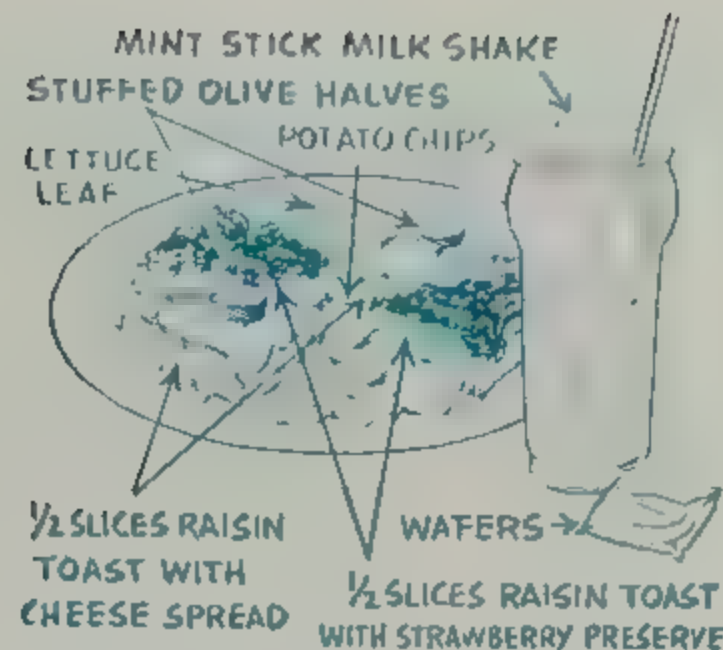 MINT STICK MILK SHAKE
STUFFED OLIVE HALVES
POTATO CHIPS
LETTUCE
LEAF
½ SLICES RAISIN
TOAST WITH
CHEESE SPREAD
WAFERS
½ SLICES RAISIN TOAST
WITH STRAWBERRY PRESERVE